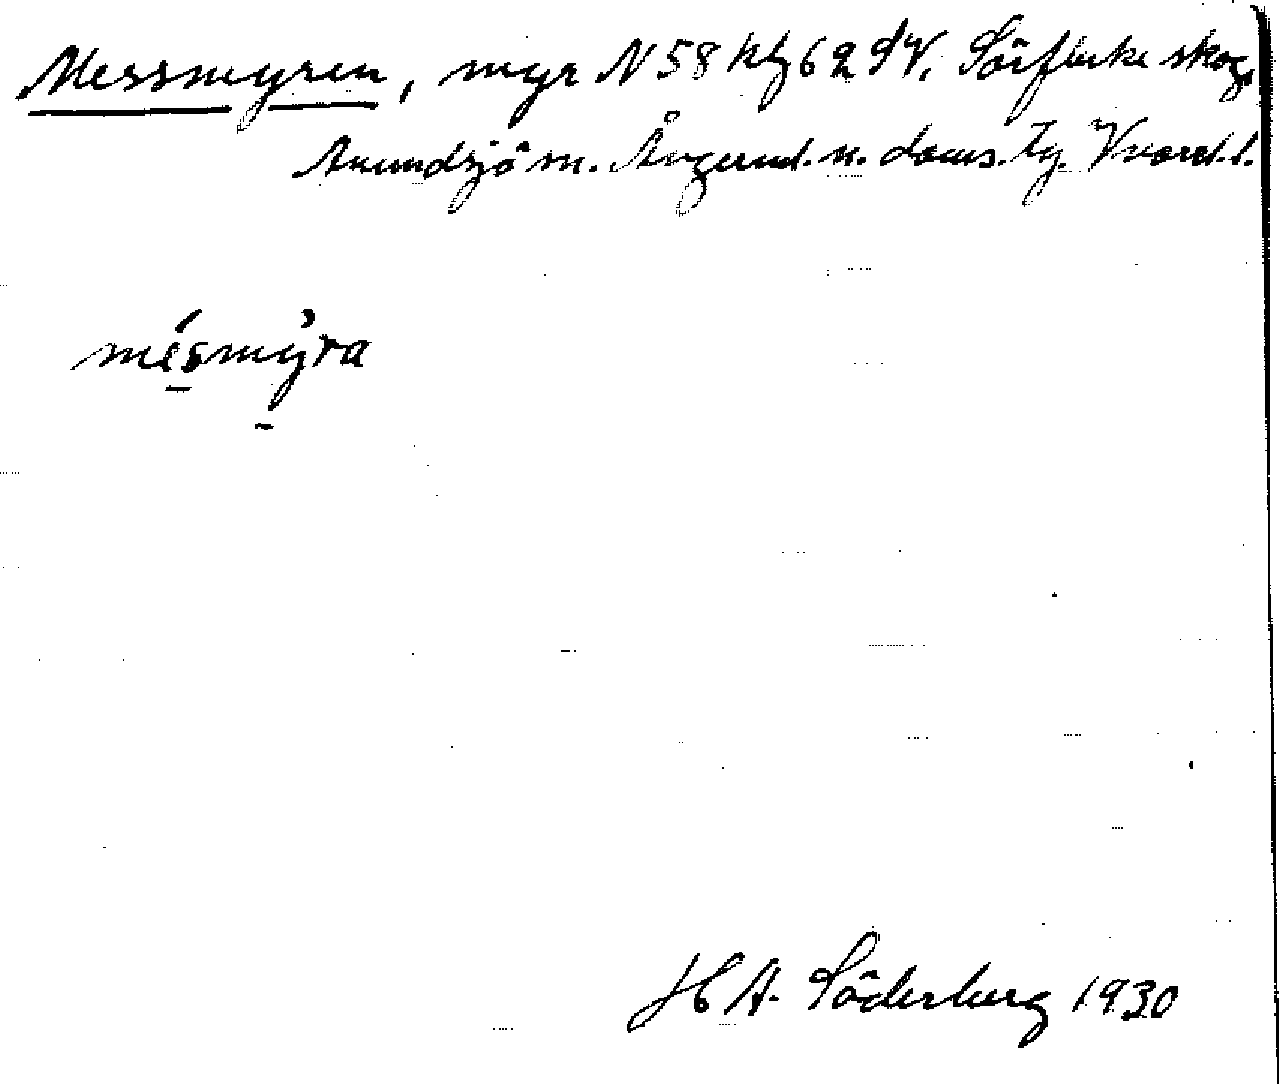 Messmyren, myr N 58 hfj 62 SV. Sörflärke skog,
Anundsjö sn. Ångerml. n. doms. Tg. Vnorrl. l.
mésmýra
H A. Söderberg 1930